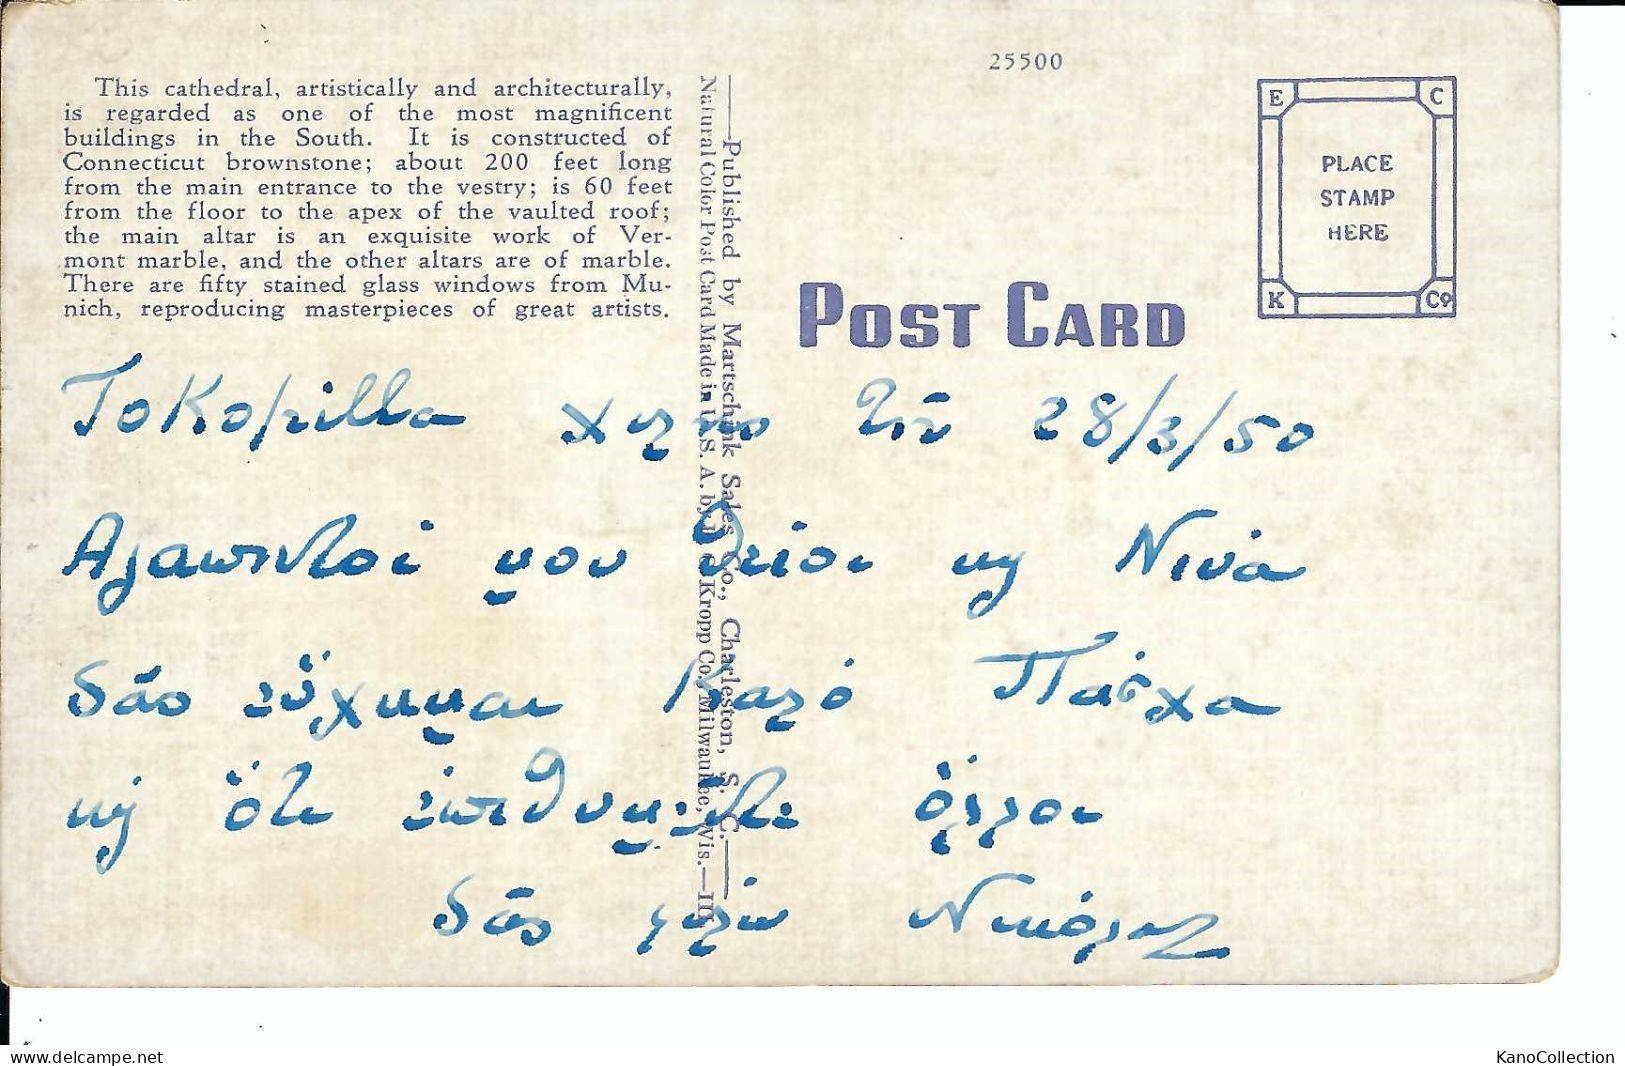 25500
This cathedral, artistically and architecturally,
is regarded as one of the most magnificent
buildings in the South. It is constructed of
Connecticut brownstone; about 200 feet long
from the main entrance to the vestry; is 60 feet
from the floor to the apex of the vaulted roof;
the main altar is an exquisite work of Ver-
mont marble, and the other altars are of marble.
There are fifty stained glass windows from Mu-
nich, reproducing masterpieces of great artists.
Published by Martschink Sales Co., Charleston, S. C.
Natural Color Post Card Made in U.S.A. by E. C. Kropp Co., Milwaukee, Wis.—
POST CARD
E C
PLACE
STAMP
HERE
K Co
Tokopilla τῇ 28/3/50
Ἀγαπητοί μου θεῖοι κϳ Νινά
Σᾶς εὔχομαι Καλό Πάσχα
κϳ ὅτι ἐπιθυμεῖτε ὅλλοι
Σᾶς φιλῶ Νικόλας
www.delcampe.net
KanoCollection